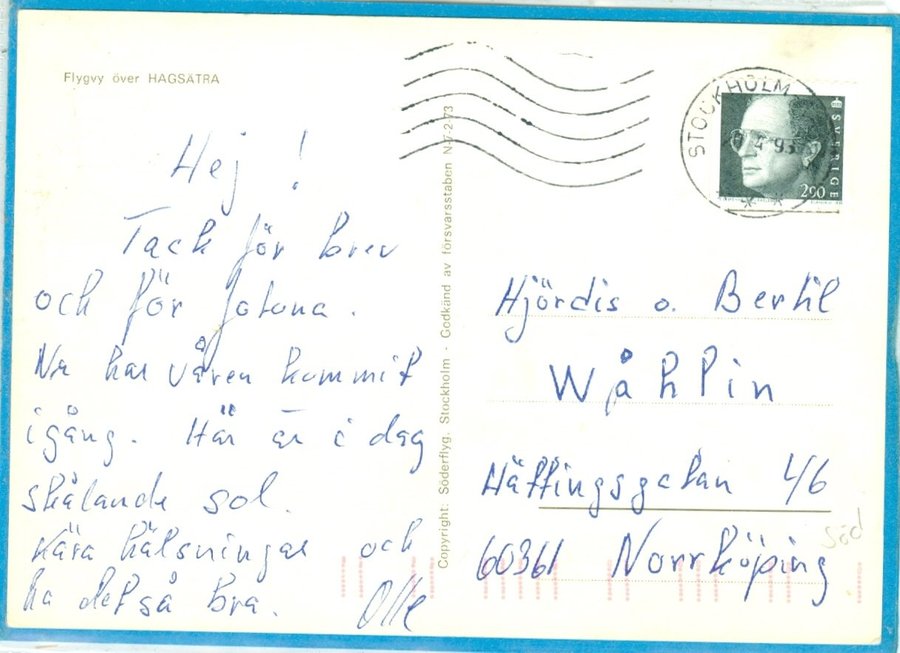 Flygvy över HAGSÄTRA
Hej !
Tack för brev
och för fotona.
Nu har våren kommit
igång. Här är i dag
strålande sol.
Kära hälsningar och
ha det så bra. Olle
Copyright: Söderflyg, Stockholm - Godkänd av försvarsstaben N-7-2-73
STOCKHOLM
4 93
SVERIGE
200
Hjördis o. Bertil
Wåhlin
Hällingsgatan 46
60361 Norrköping
Söd